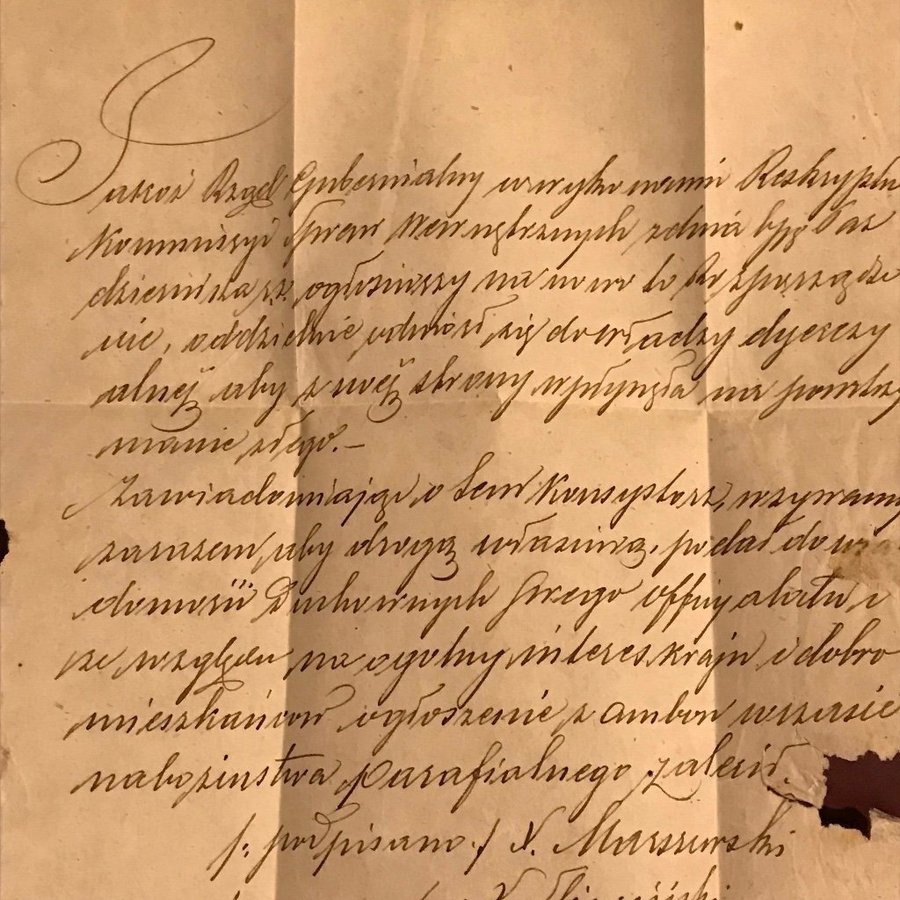 Jakoż Rząd Gubernialny w wykonaniu Reskryptu
Kommissyi Spraw Wewnętrznych z dnia Paz
dziernika ogłosiwszy na nowo to Rozporządze
nie, oddzielnie odniosł się do władzy dyecezy
alnej aby z swej strony wpłynęła na powstrzy
manie złego.—
Zawiadomiając o tem Konsystorz, wzywamy
zarazem aby drogą własciwą, podał do wia
domości Duchownych swego offycyalatu i
ze względu na ogolny interes kraju i dobro
mieszkańcow ogłoszenie z ambon w czasie
nabozenstwa parafialnego zalecił.
/: podpisano / X. Marszewski